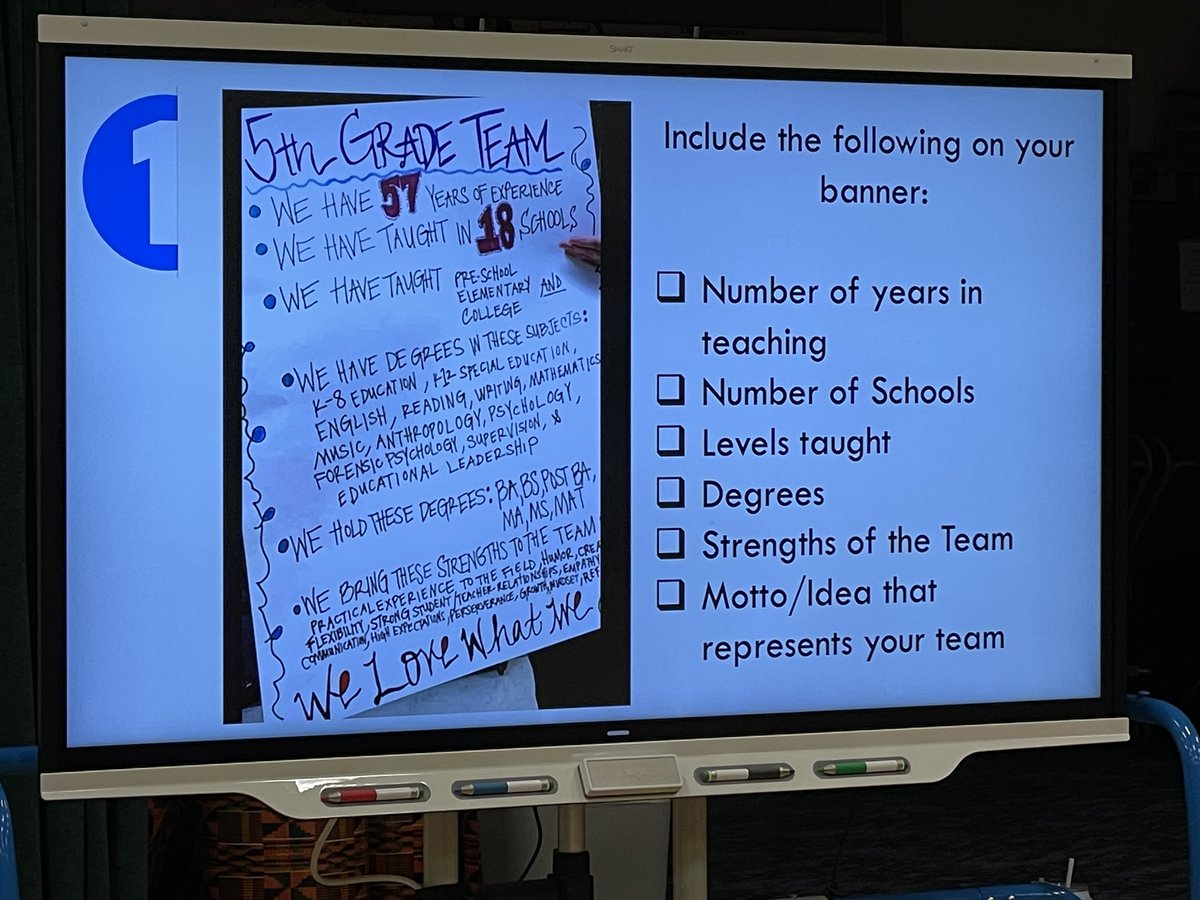 SMART
1
5th GRADE TEAM
• WE HAVE 57 YEARS OF EXPERIENCE
• WE HAVE TAUGHT IN 18 SCHOOLS
• WE HAVE TAUGHT PRE-SCHOOL
ELEMENTARY AND
COLLEGE
• WE HAVE DEGREES IN THESE SUBJECTS:
K-8 EDUCATION, K-12 SPECIAL EDUCATION,
ENGLISH, READING, WRITING, MATHEMATICS
MUSIC, ANTHROPOLOGY, PSYCHOLOGY,
FORENSIC PSYCHOLOGY, SUPERVISION, &
EDUCATIONAL LEADERSHIP
• WE HOLD THESE DEGREES: BA, BS, POST BA,
MA, MS, MAT
• WE BRING THESE STRENGTHS TO THE TEAM
PRACTICAL EXPERIENCE TO THE FIELD, HUMOR,
FLEXIBILITY, STRONG STUDENT/TEACHER RELATIONSHIPS, EMPATHY
COMMUNICATION, HIGH EXPECTATIONS, PERSERVERANCE, GROWTH MINDSET,
We Love What We
Include the following on your
banner:
❑ Number of years in
teaching
❑ Number of Schools
❑ Levels taught
❑ Degrees
❑ Strengths of the Team
❑ Motto/Idea that
represents your team